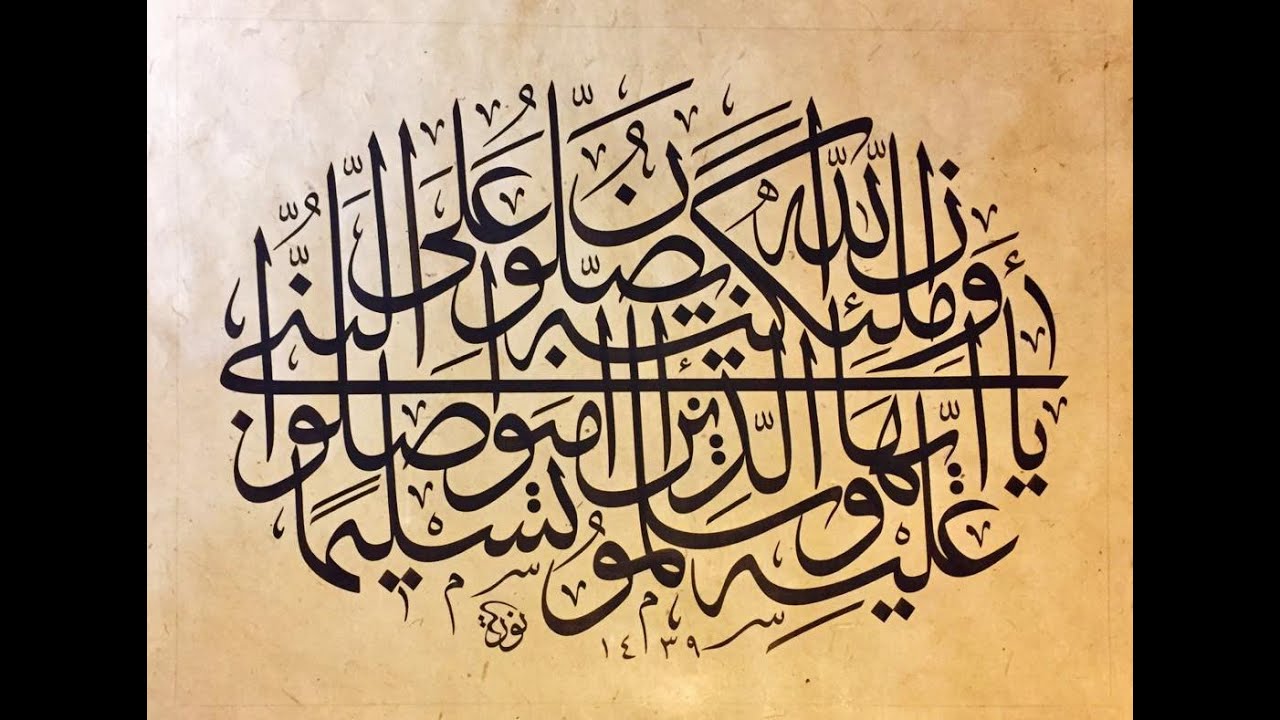 إن الله وملئكته يصلون على النبي
يا أيها الذين أمنوا صلوا
عليه وسلموا تسليما
١٤٣٩